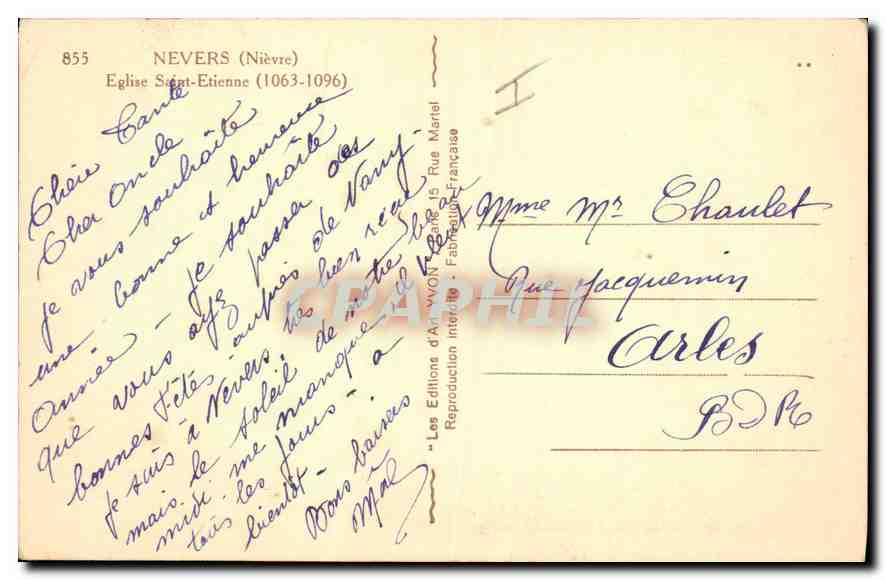 855 NEVERS (Nièvre)
Eglise Saint-Etienne (1063-1096)
Chère Tante
Cher Oncle
je vous souhaite
une bonne et heureuse
Année - je souhaite
que vous ayez passer des
bonnes Fêtes auprès de Nany.
je suis à Nevers très bien
mais le soleil de notre beau
midi me manque
tous les jours - à
bientôt -
Bons baisers
"Les Editions d'Art YVON" Paris 15 Rue Martel
Reproduction interdite - Fabrication Française
CPAPHIL
I
Mme Mr Chaulet
Rue Jacquemin
Arles
BDR